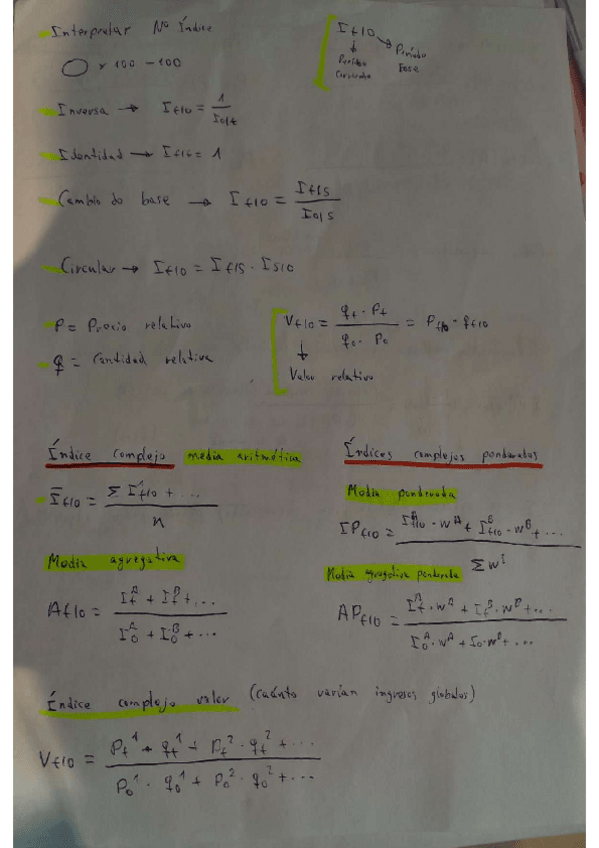 Interpretar Nº Índice
It|0
Período
Base
Período
Corriente
○ x 100 - 100
Inversa → It|0 = 1 / I0|t
Identidad → It|t = 1
Cambio de base → It|0 = It|s / I0|s
Circular → It|0 = It|s · Is|0
P = Precio relativo
q = Cantidad relativa
Vt|0 = qt · Pt / q0 · P0 = Pt|0 · qt|0
Valor relativo
Índice complejo media aritmética
Īt|0 = Σ I¹t|0 + ... / n
Media agregativa
At|0 = Iᴬt + Iᴮt + ... / Iᴬ0 + Iᴮ0 + ...
Índices complejos ponderados
Media ponderada
IPt|0 = Iᴬt|0 · wᴬ + Iᴮt|0 · wᴮ + ... / Σ wⁱ
Media agregativa ponderada
APt|0 = Iᴬt · wᴬ + Iᴮt · wᴮ + ... / Iᴬ0 · wᴬ + I0 · wᴮ + ...
Índice complejo valor (cuánto varían ingresos globales)
Vt|0 = Pt¹ · qt¹ + Pt² · qt² + ... / P0¹ · q0¹ + P0² · q0² + ...